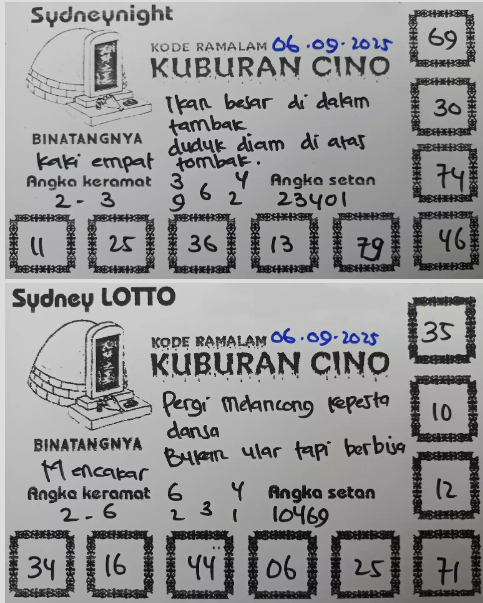 Sydneynight
KODE RAMALAM 06.09.2025
KUBURAN CINO
69
30
74
46
Ikan besar di dalam
tambak
duduk diam di atas
tombak.
BINATANGNYA
kaki empat
Angka keramat
2 - 3
3 4
9 6 2
Angka setan
23401
11 25 36 13 79
Sydney LOTTO
KODE RAMALAM 06.09.2025
KUBURAN CINO
35
10
12
71
Pergi melancong kepesta
dansa
Bukan ular tapi berbisa
BINATANGNYA
Mencakar
Angka keramat
2 - 6
6 4
2 3 1
Angka setan
10469
34 16 44 06 25